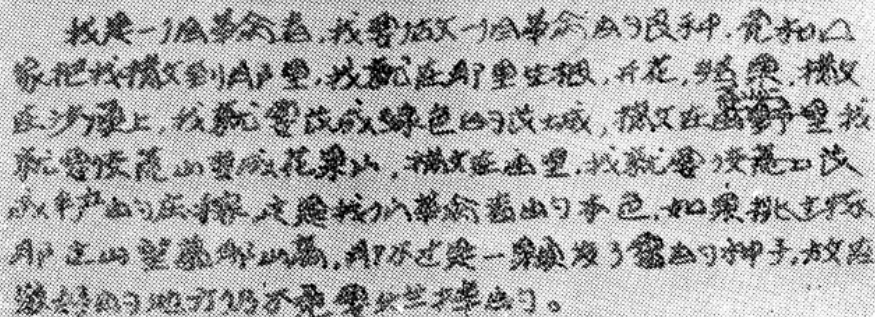 我是一个革命者，我要做一个革命的良种，党和国
家把我撒到那里，我就在那里生根，开花，结果，撒
在沙漠上，我就要改成绿色的城，撒在野里我
就要使荒山变成花果山，撒在里，我就要使荒山改
成丰产的庄稼，这是我们革命者的本色，如果挑
那山望那山高，那不过是一颗发了霉的种子，放在
最好的地方仍不是要的。